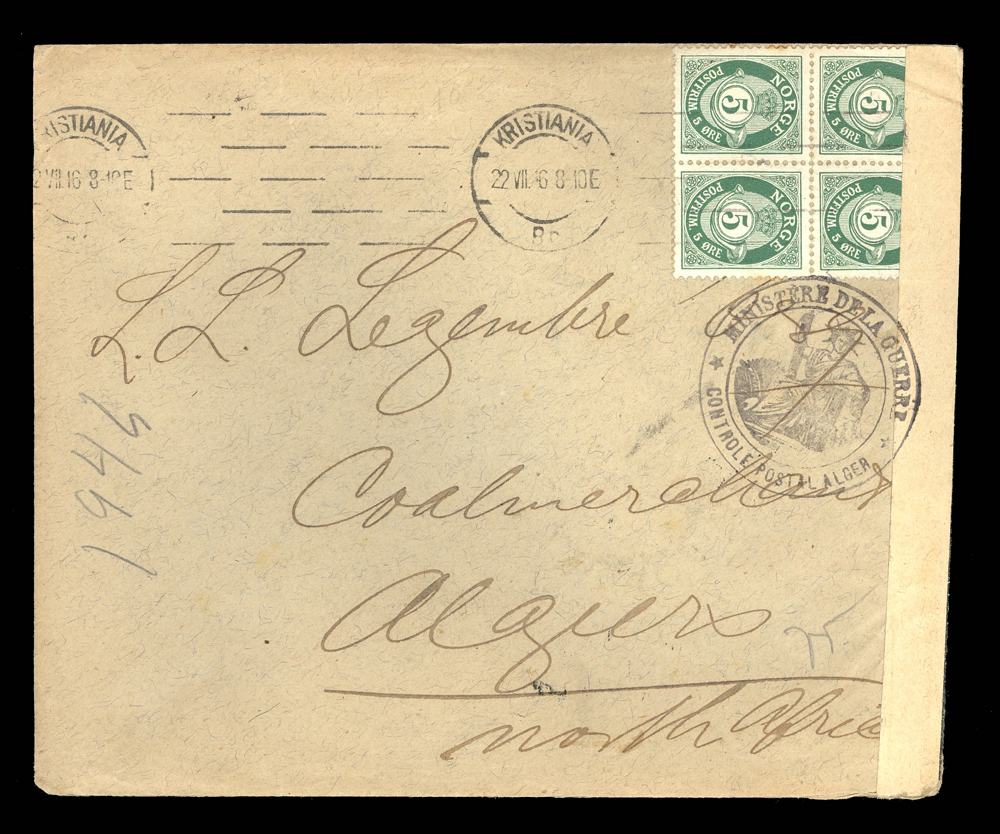 KRISTIANIA
22 VII. 16 8-10E
KRISTIANIA
22 VII. 16 8-10E
NORGE
POSTFRIM
5
5 ØRE
POSTFRIM
5
5 ØRE
NORGE
POSTFRIM
5
5 ØRE
POSTFRIM
5
5 ØRE
MINISTÈRE DE LA GUERRE
CONTROLE POSTAL ALGER
L. L. Legembre
Coalmerchant
Algiers
north Afric
1946